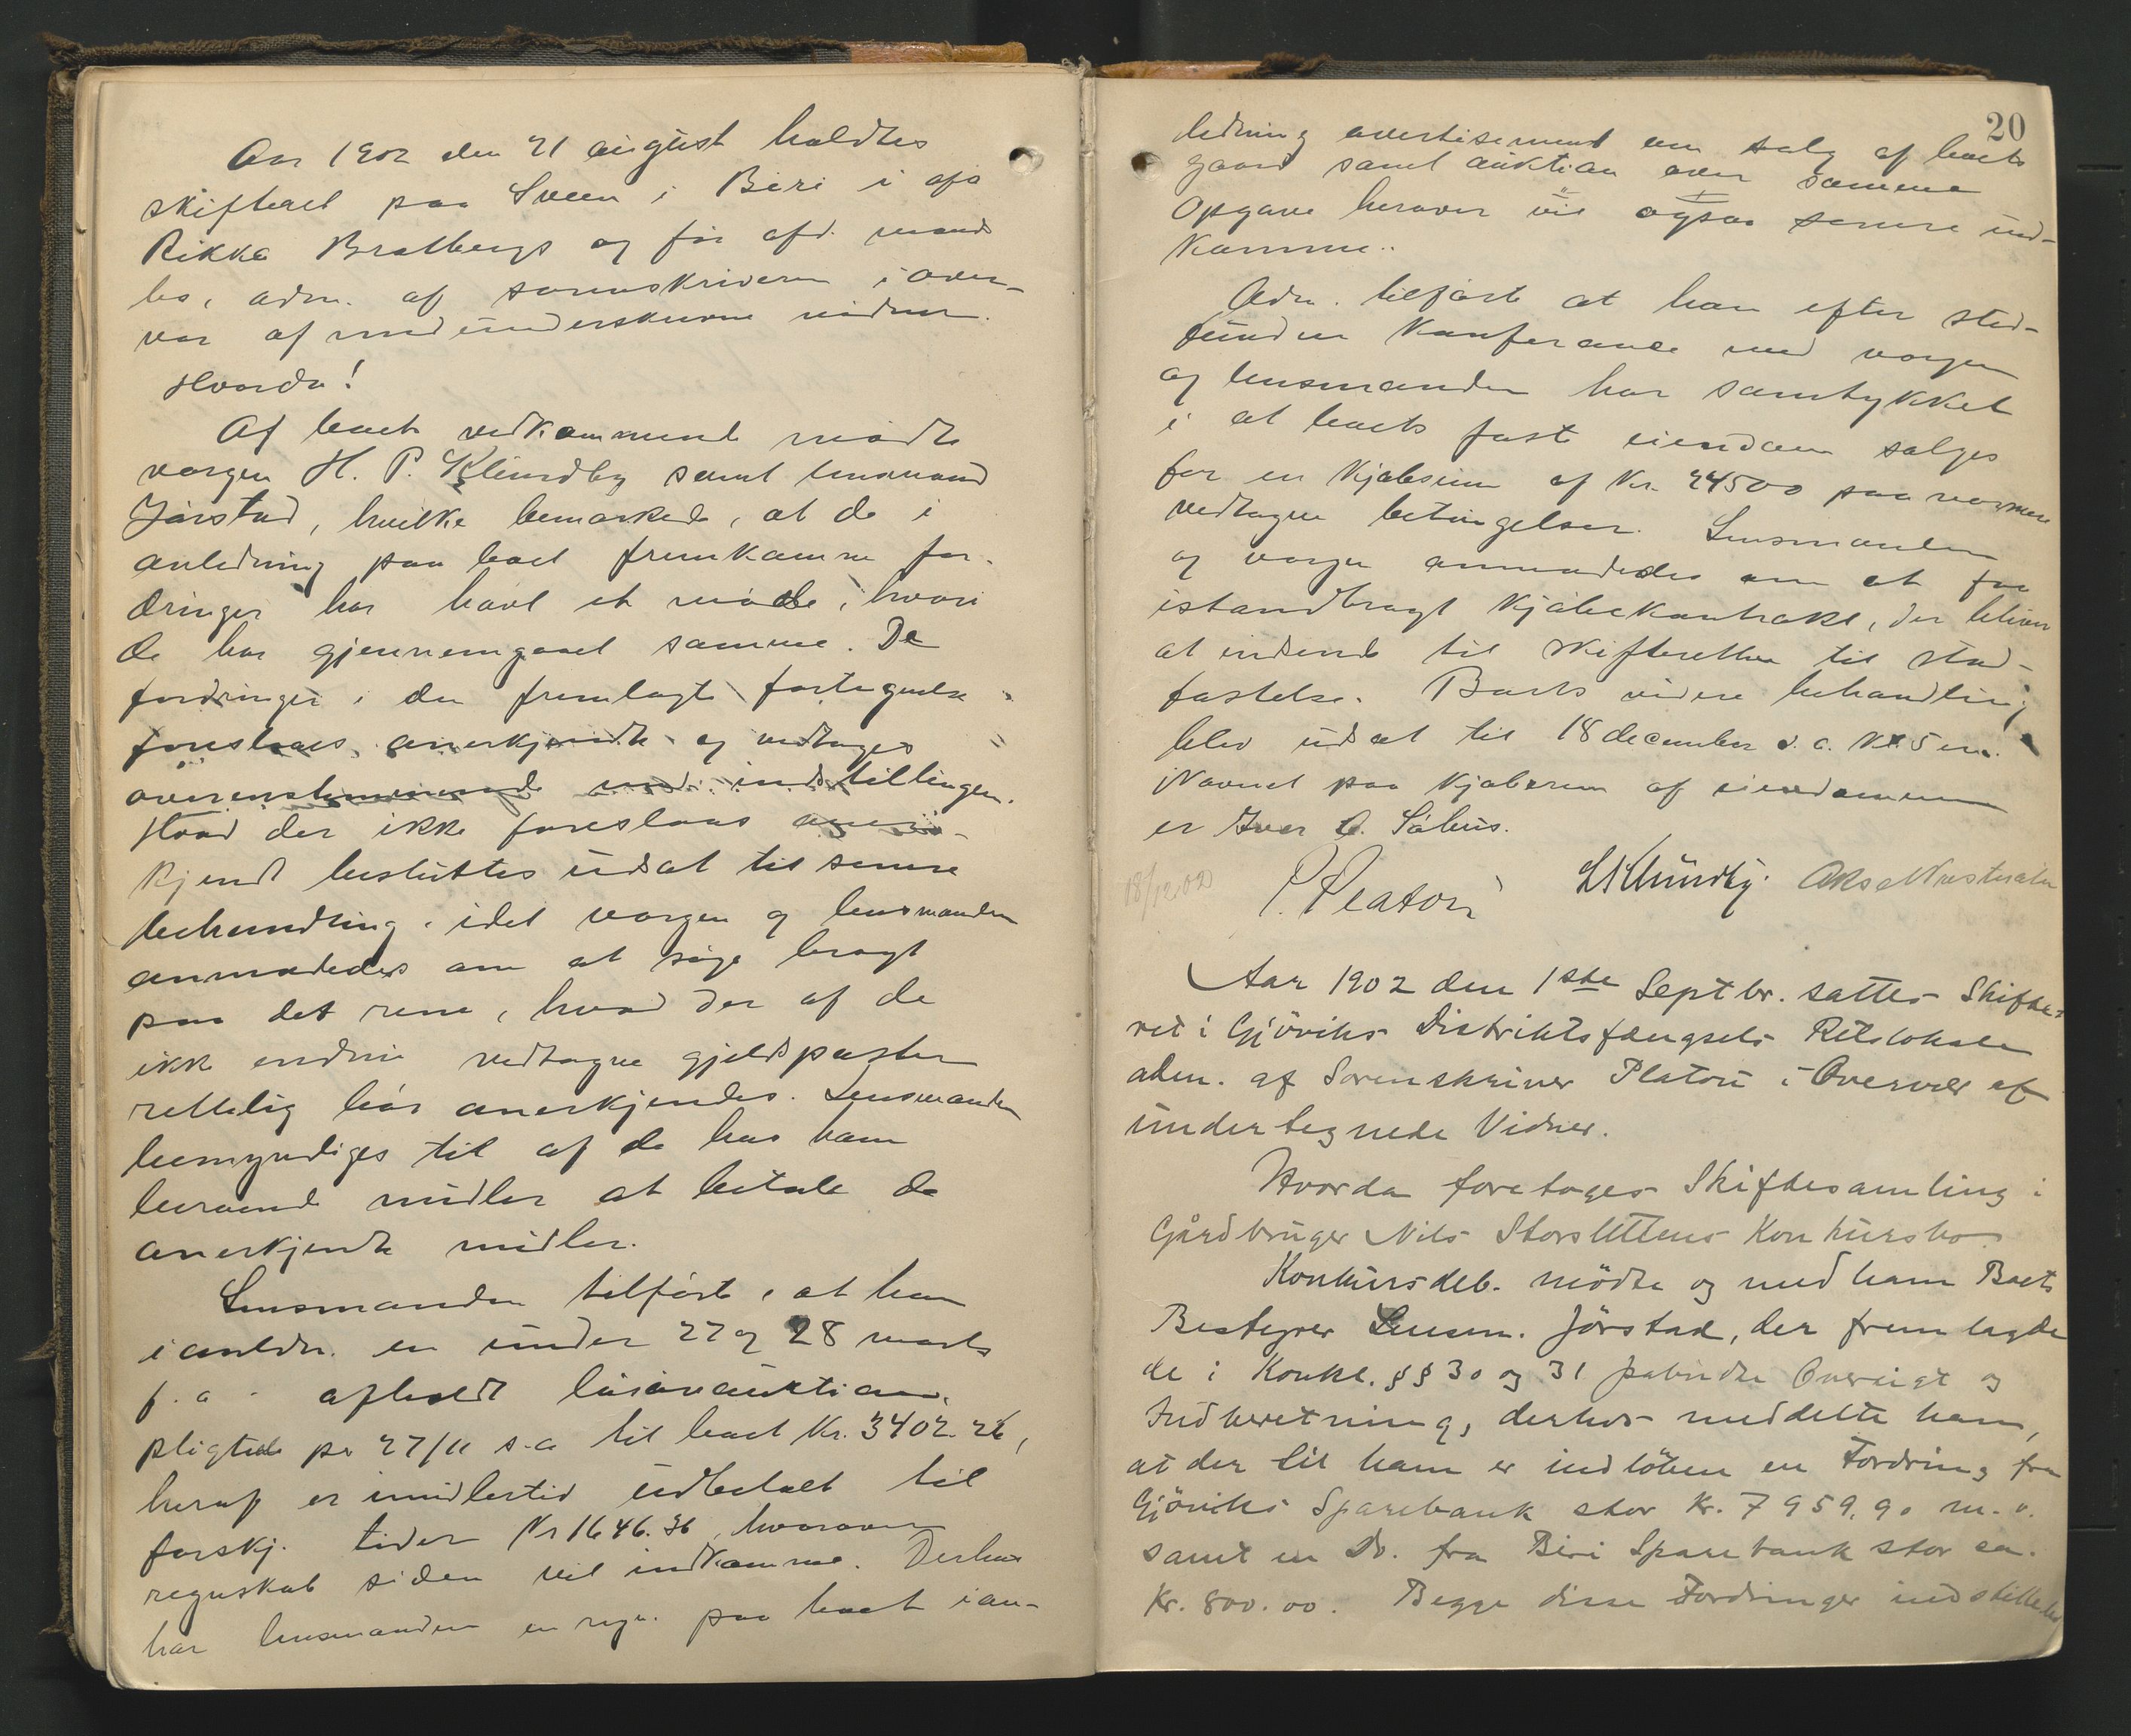 Aar 1902 den 21 august holdtes
skifteret paa Sveen i Biri i afd
Rikka Bratbergs og før afd. mands
bo, adm. af sorenskriveren i over-
vær af medunderskrevne vidner.
Hvorda!
Af boet vedkommende mødte
vergen H. P. Klundby samt lensmand
Jørstad, hvilke bemærkede, at de i
anledning paa boet fremkomne for-
dringer har havt et møde, hvori
de har gjennemgaaet samme. De
fordringer i den fremlagte fortegnelse
foreslaaes anerkjendte og vedtages
overensstemmende med indstillingen.
Hvad der ikke foreslaaes aner-
kjendt besluttes udsat til senere
behandling, idet vergen og lensmanden
anmodedes om at søge bragt
paa det rene, hvad der af de
ikke endnu vedtagne gjeldsposter
rettelig bør anerkjendes. Lensmanden
bemyndiges til af de hos ham
beroende midler at betale de
anerkjendte midler.
Lensmanden tilførte, at han
i anledn. en under 27 og 28 marts
f. a. afholdt løsøreauktion,
pligtede pr 27/11 s.a til boet Kr. 3402.26,
heraf er imidlertid udbetalt til
forskj. tider Kr 1646.36, hvorover
regnskab siden vil indkomme. Derhos
har lensmanden en regn. paa boet i an-
20
ledning avertisement om salg af boets
gaard samt auktion over samme
Opgave herover vil ogsaa senere ind-
komme..
Adm. tilførte at han efter sted-
funden konferance med vergen
og lensmanden har samtykket
i at boets fast eiendom selges
for en kjøbesum af Kr. 24500 paa nærmere
vedtagne betingelser. Lensmanden
og vergen anmodedes om at faa
istandbragt kjøbekontrakt, der bliver
at indsende til skifteretten til stad-
fæstelse. Boets videre behandling
blev udsat til 18 december d. a. kl. 5 em.
Navnet paa kjøberen af eiendommen
er Iver O. Sæhus.
18/12 02 P. Platou HKlundby. Aksel
Aar 1902 den 1ste Septbr. sattes Skifte-
ret i Gjöviks Distriktsfængsels Retslokale
adm. af Sorenskriver Platou i Overvær af
undertegnede Vidner.
Hvorda foretoges Skiftesamling i
Gårdbruger Nils Storslettens Konkursbo.
Konkursdeb. mödte og med ham Boets
Bestyrer Lensm. Jörstad, der fremlagde
de i Konkl. §§ 30 og 31 påbudte Oversigt og
Indberetning, derhos meddelte han,
at der til ham er indlöben en Fordring fra
Gjöviks Sparebank stor Kr. 7959.90 m. v.
samt en Do. fra Biri Sparebank stor ca.
Kr. 800.00. Begge disse Fordringer indstilledes